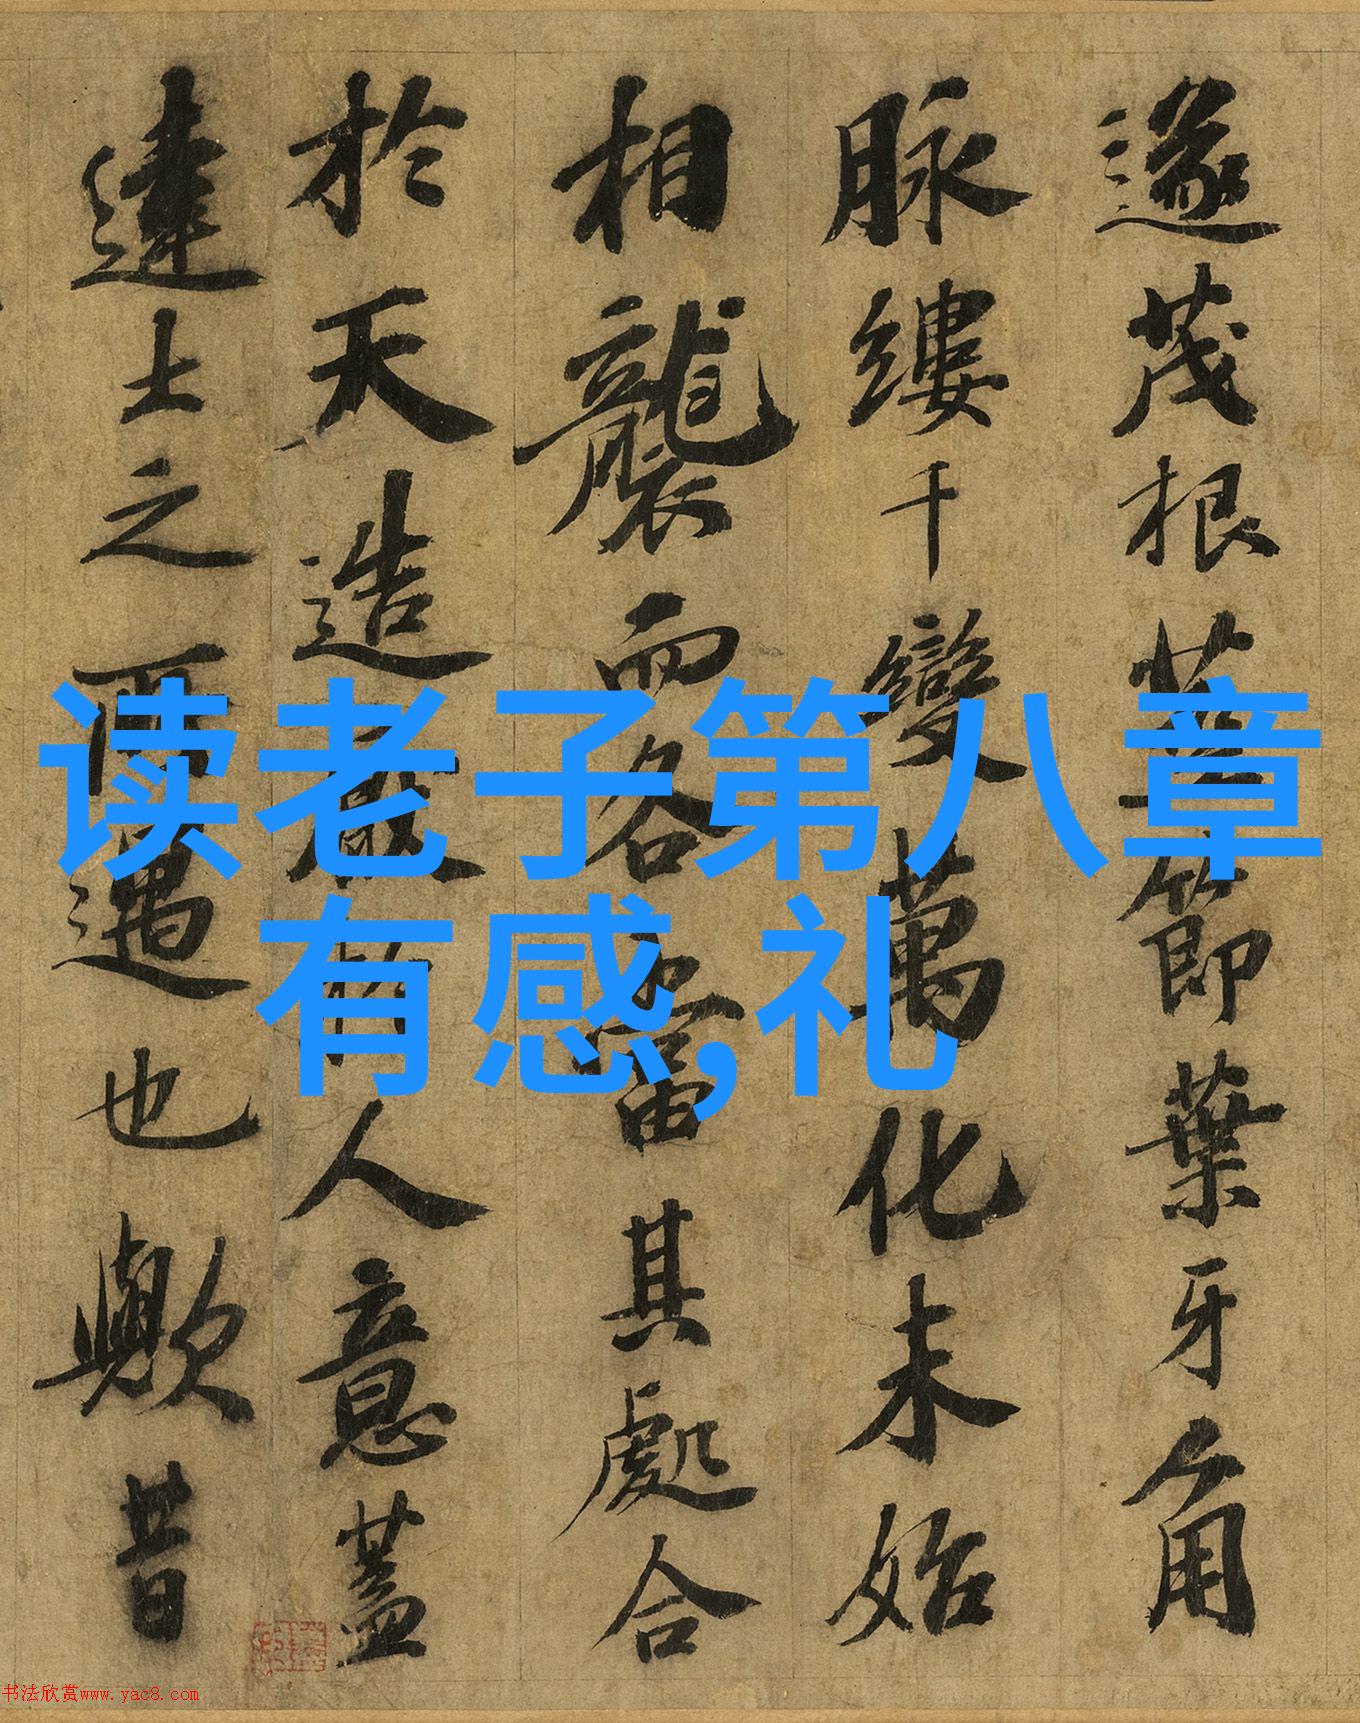 读老子第八章
有感,礼
遂茂根莖節葉牙角
脉縷千變萬化未始
相襲而各當其處合
於天造厭於人意蓋
達士之所遇也歟昔
书法欣赏www.yac8.com